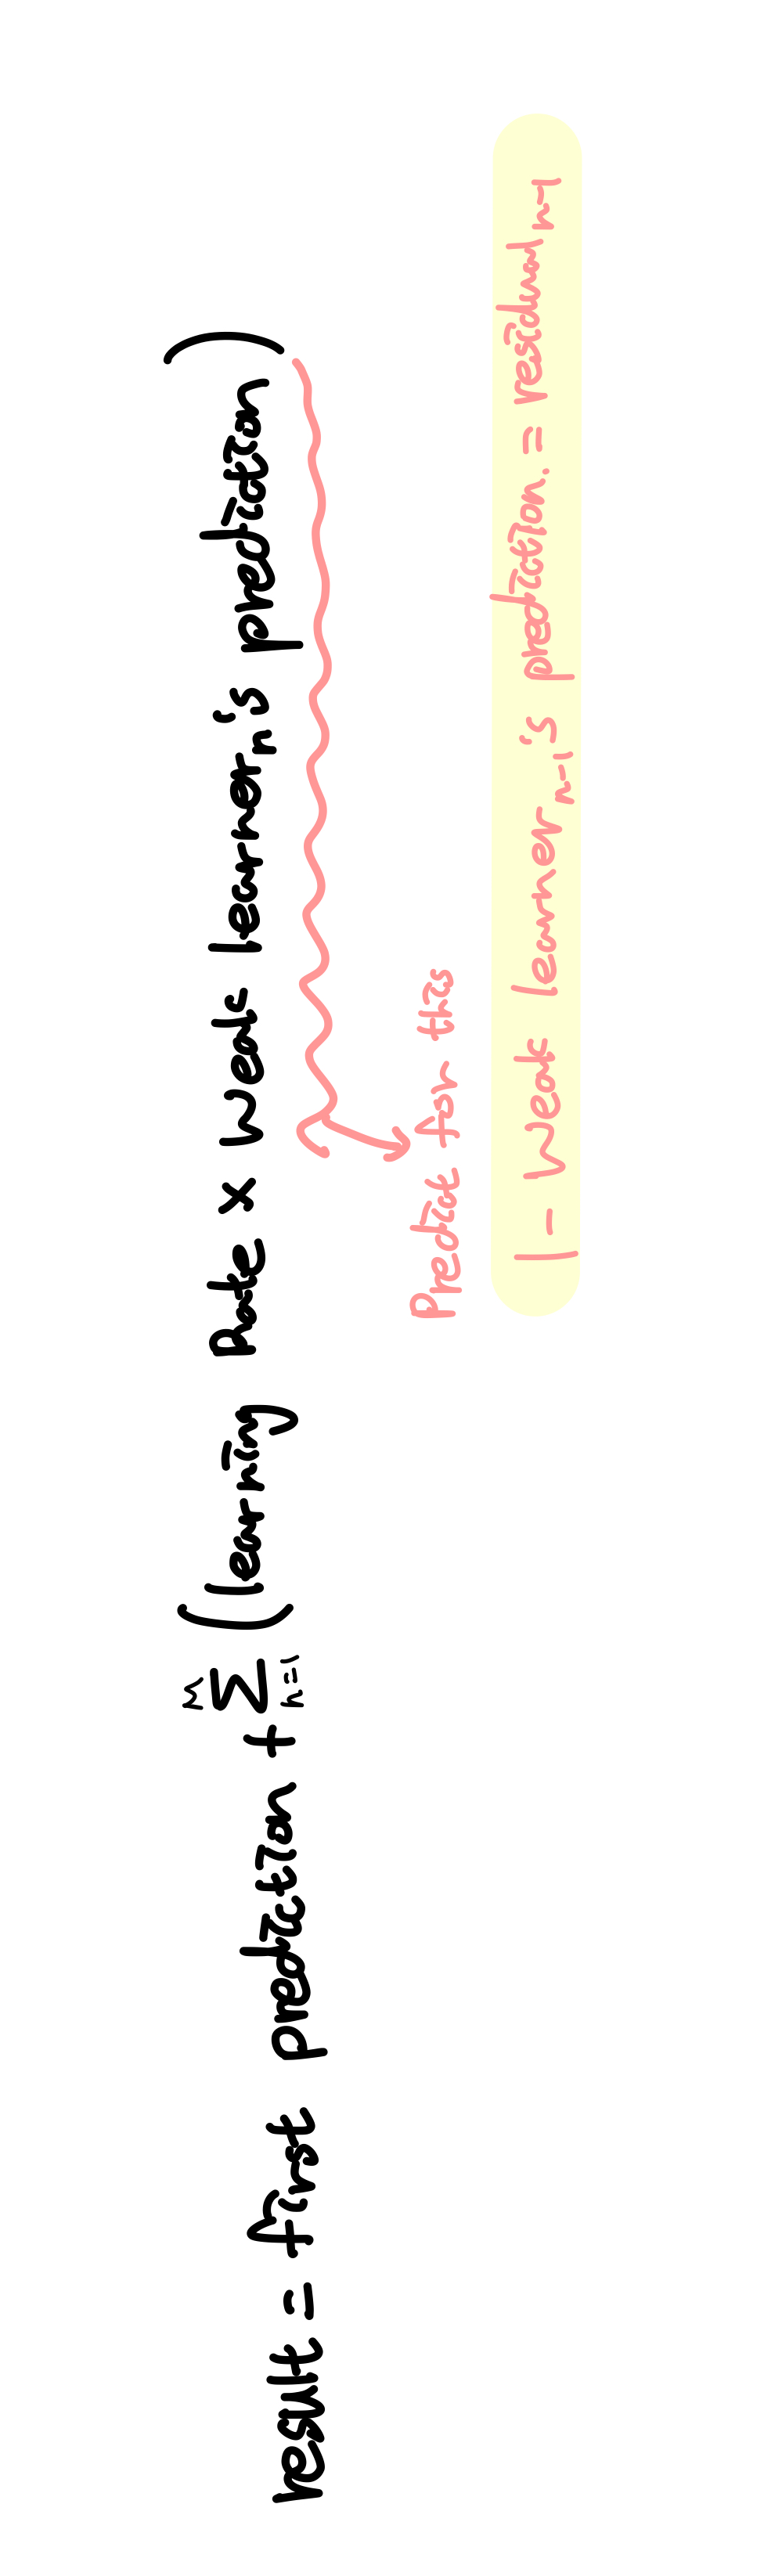 result = first prediction + M Σ n=1 (learning Rate × weak learner n's prediction)
Predict for this
1 - weak learner n-1's prediction. = residual n-1